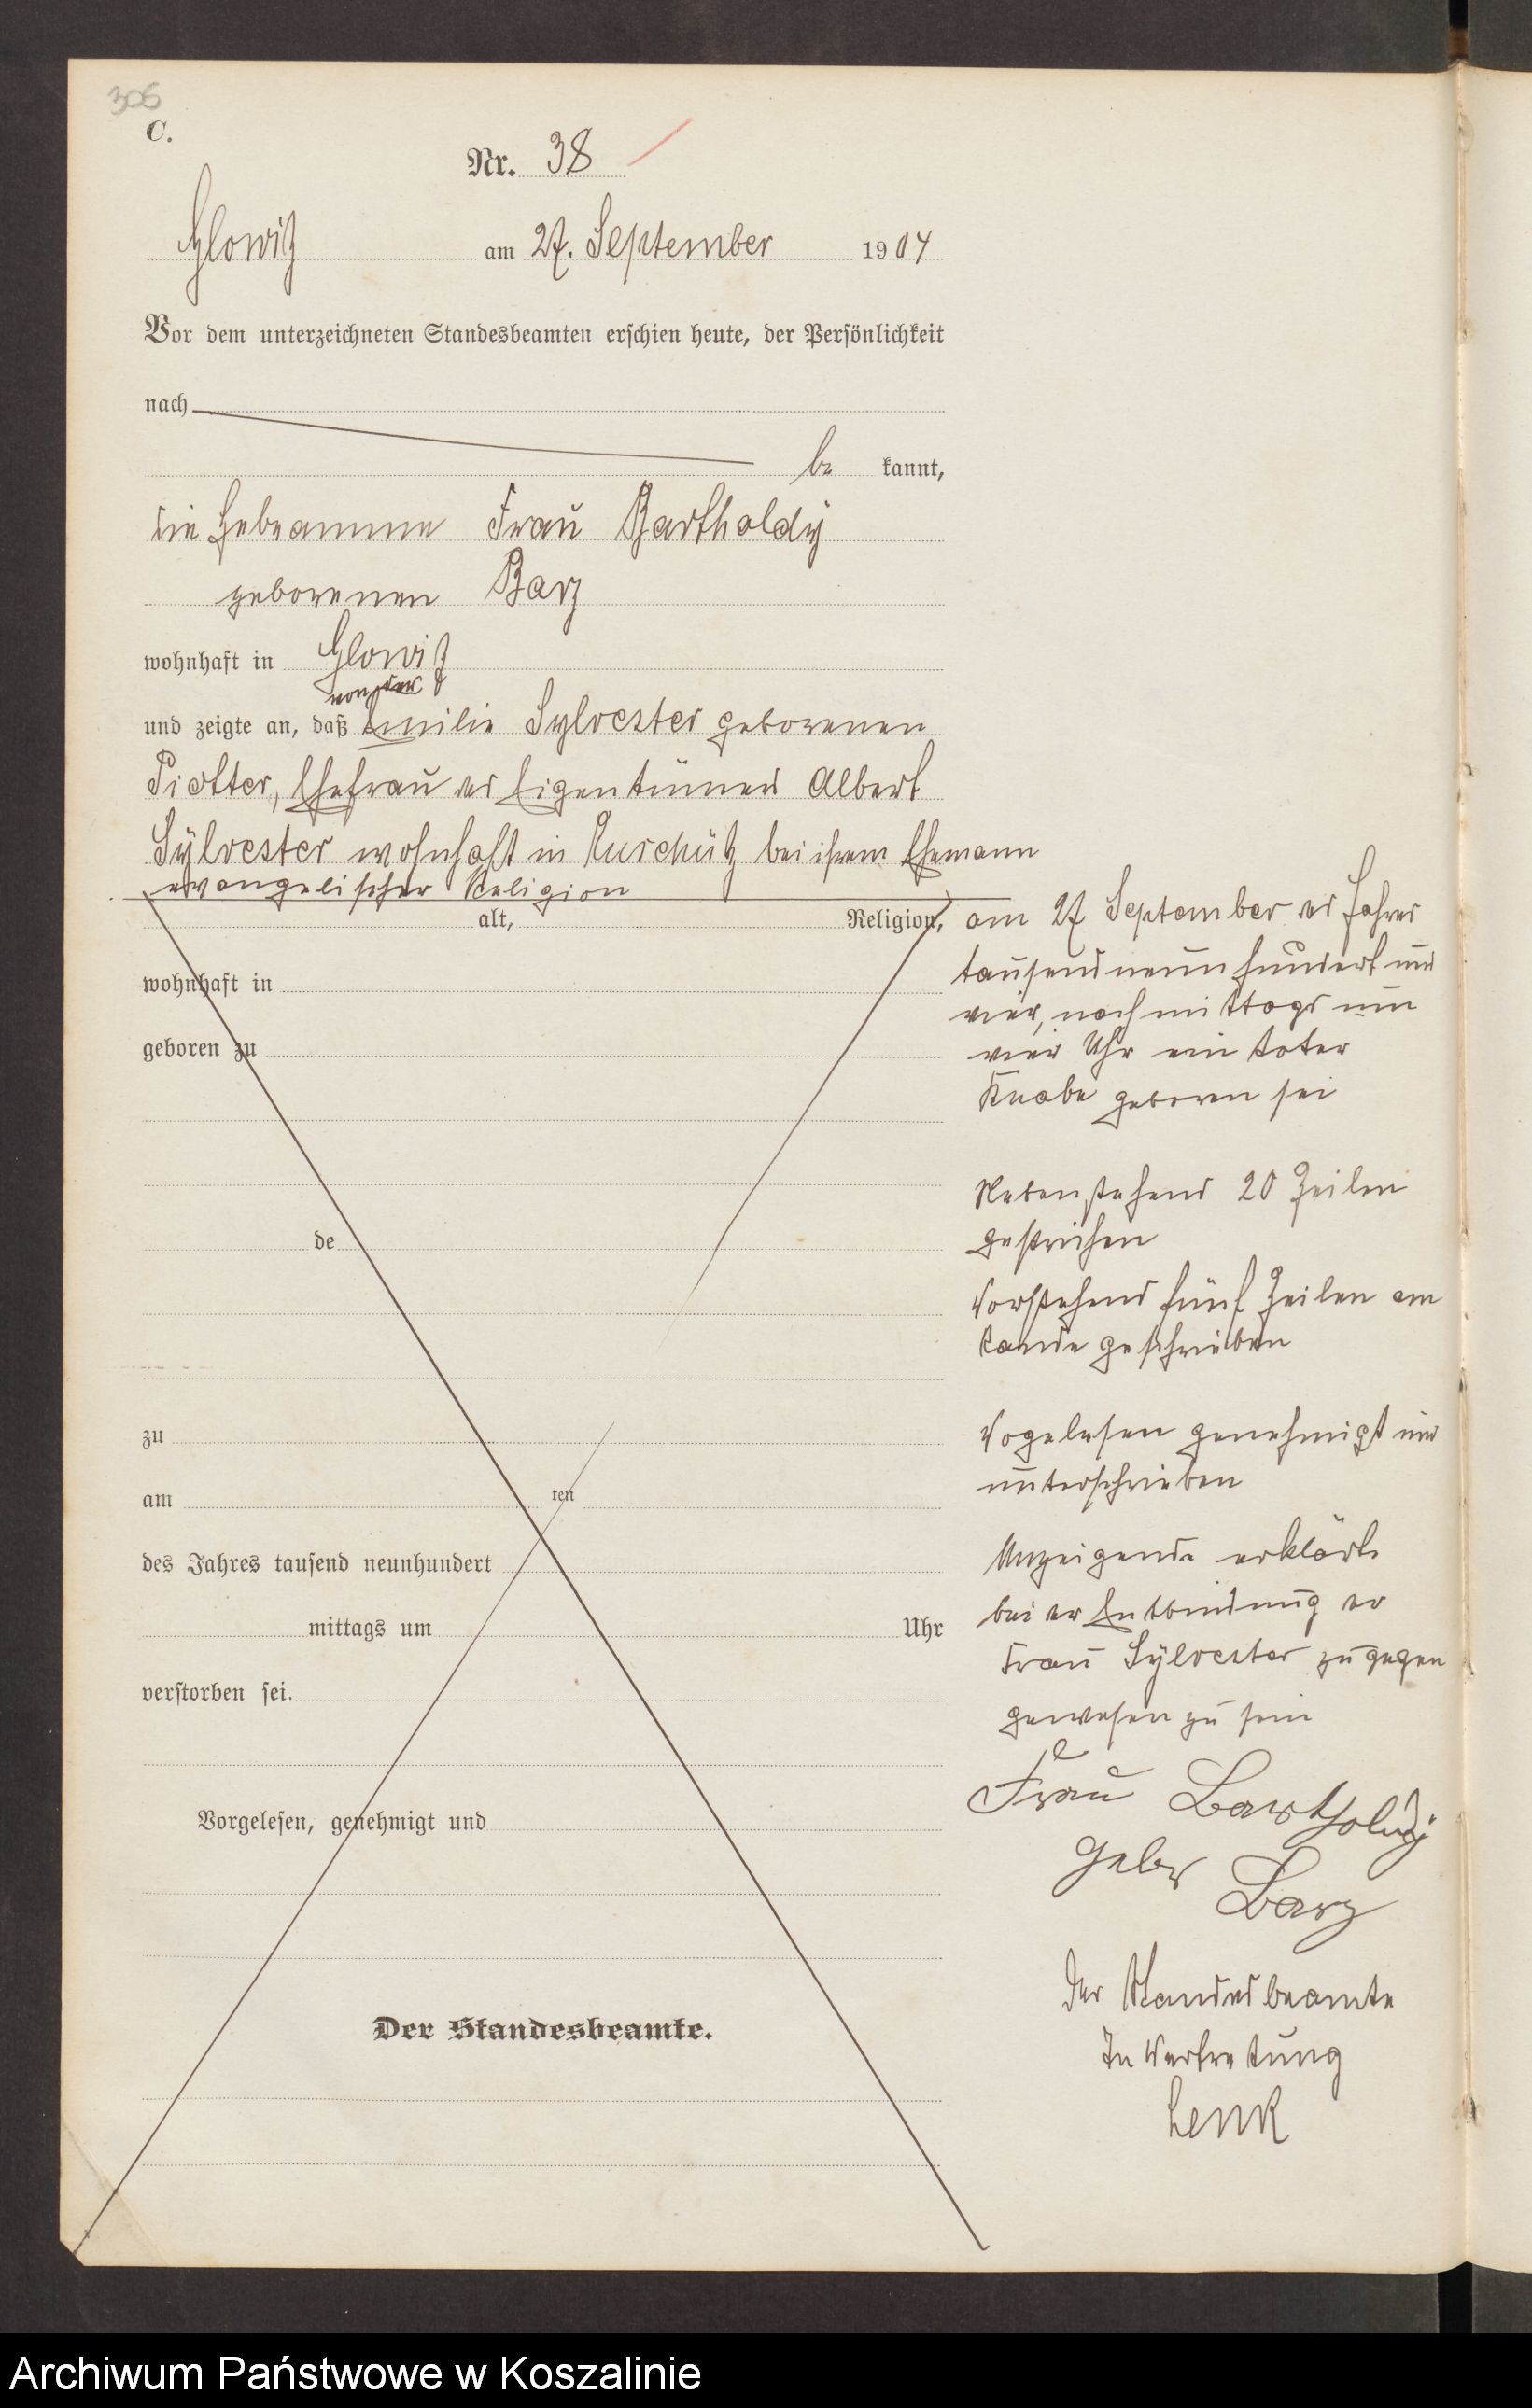 306
C.
Nr. 38
Glowitz am 27. September 1904
Vor dem unterzeichneten Standesbeamten erschien heute, der Persönlichkeit
nach
be kannt,
die Hebeamme Frau Bartholdy
geborenen Barz
wohnhaft in Glowitz
von der
und zeigte an, daß Emilie Sylvester geborenen
Piotter, Ehefrau des Eigentümers Albert
Sylvester wohnhaft in Ruschütz bei ihrem Ehemann
evangelischer Religion
alt, Religion,
wohnhaft in
geboren zu
de
zu
am ten
des Jahres tausend neunhundert
mittags um Uhr
verstorben sei.
Vorgelesen, genehmigt und
Der Standesbeamte.
am 27 September des Jahres
tausend neunhundert und
vier, nachmittags um
vier Uhr ein toter
Knabe geboren sei
Nebenstehend 20 Zeilen
gestrichen
Vorstehend fünf Zeilen am
Rande geschrieben
Vogelesen genehmigt und
unterschrieben
Anzeigende erklärt
bei der Entbindung der
Frau Sylvester zugegen
gewesen zu sein
Frau Bartholdy
gebr Barz
Der Standesbeamte
In Vertretung
Lenk
Archiwum Państwowe w Koszalinie